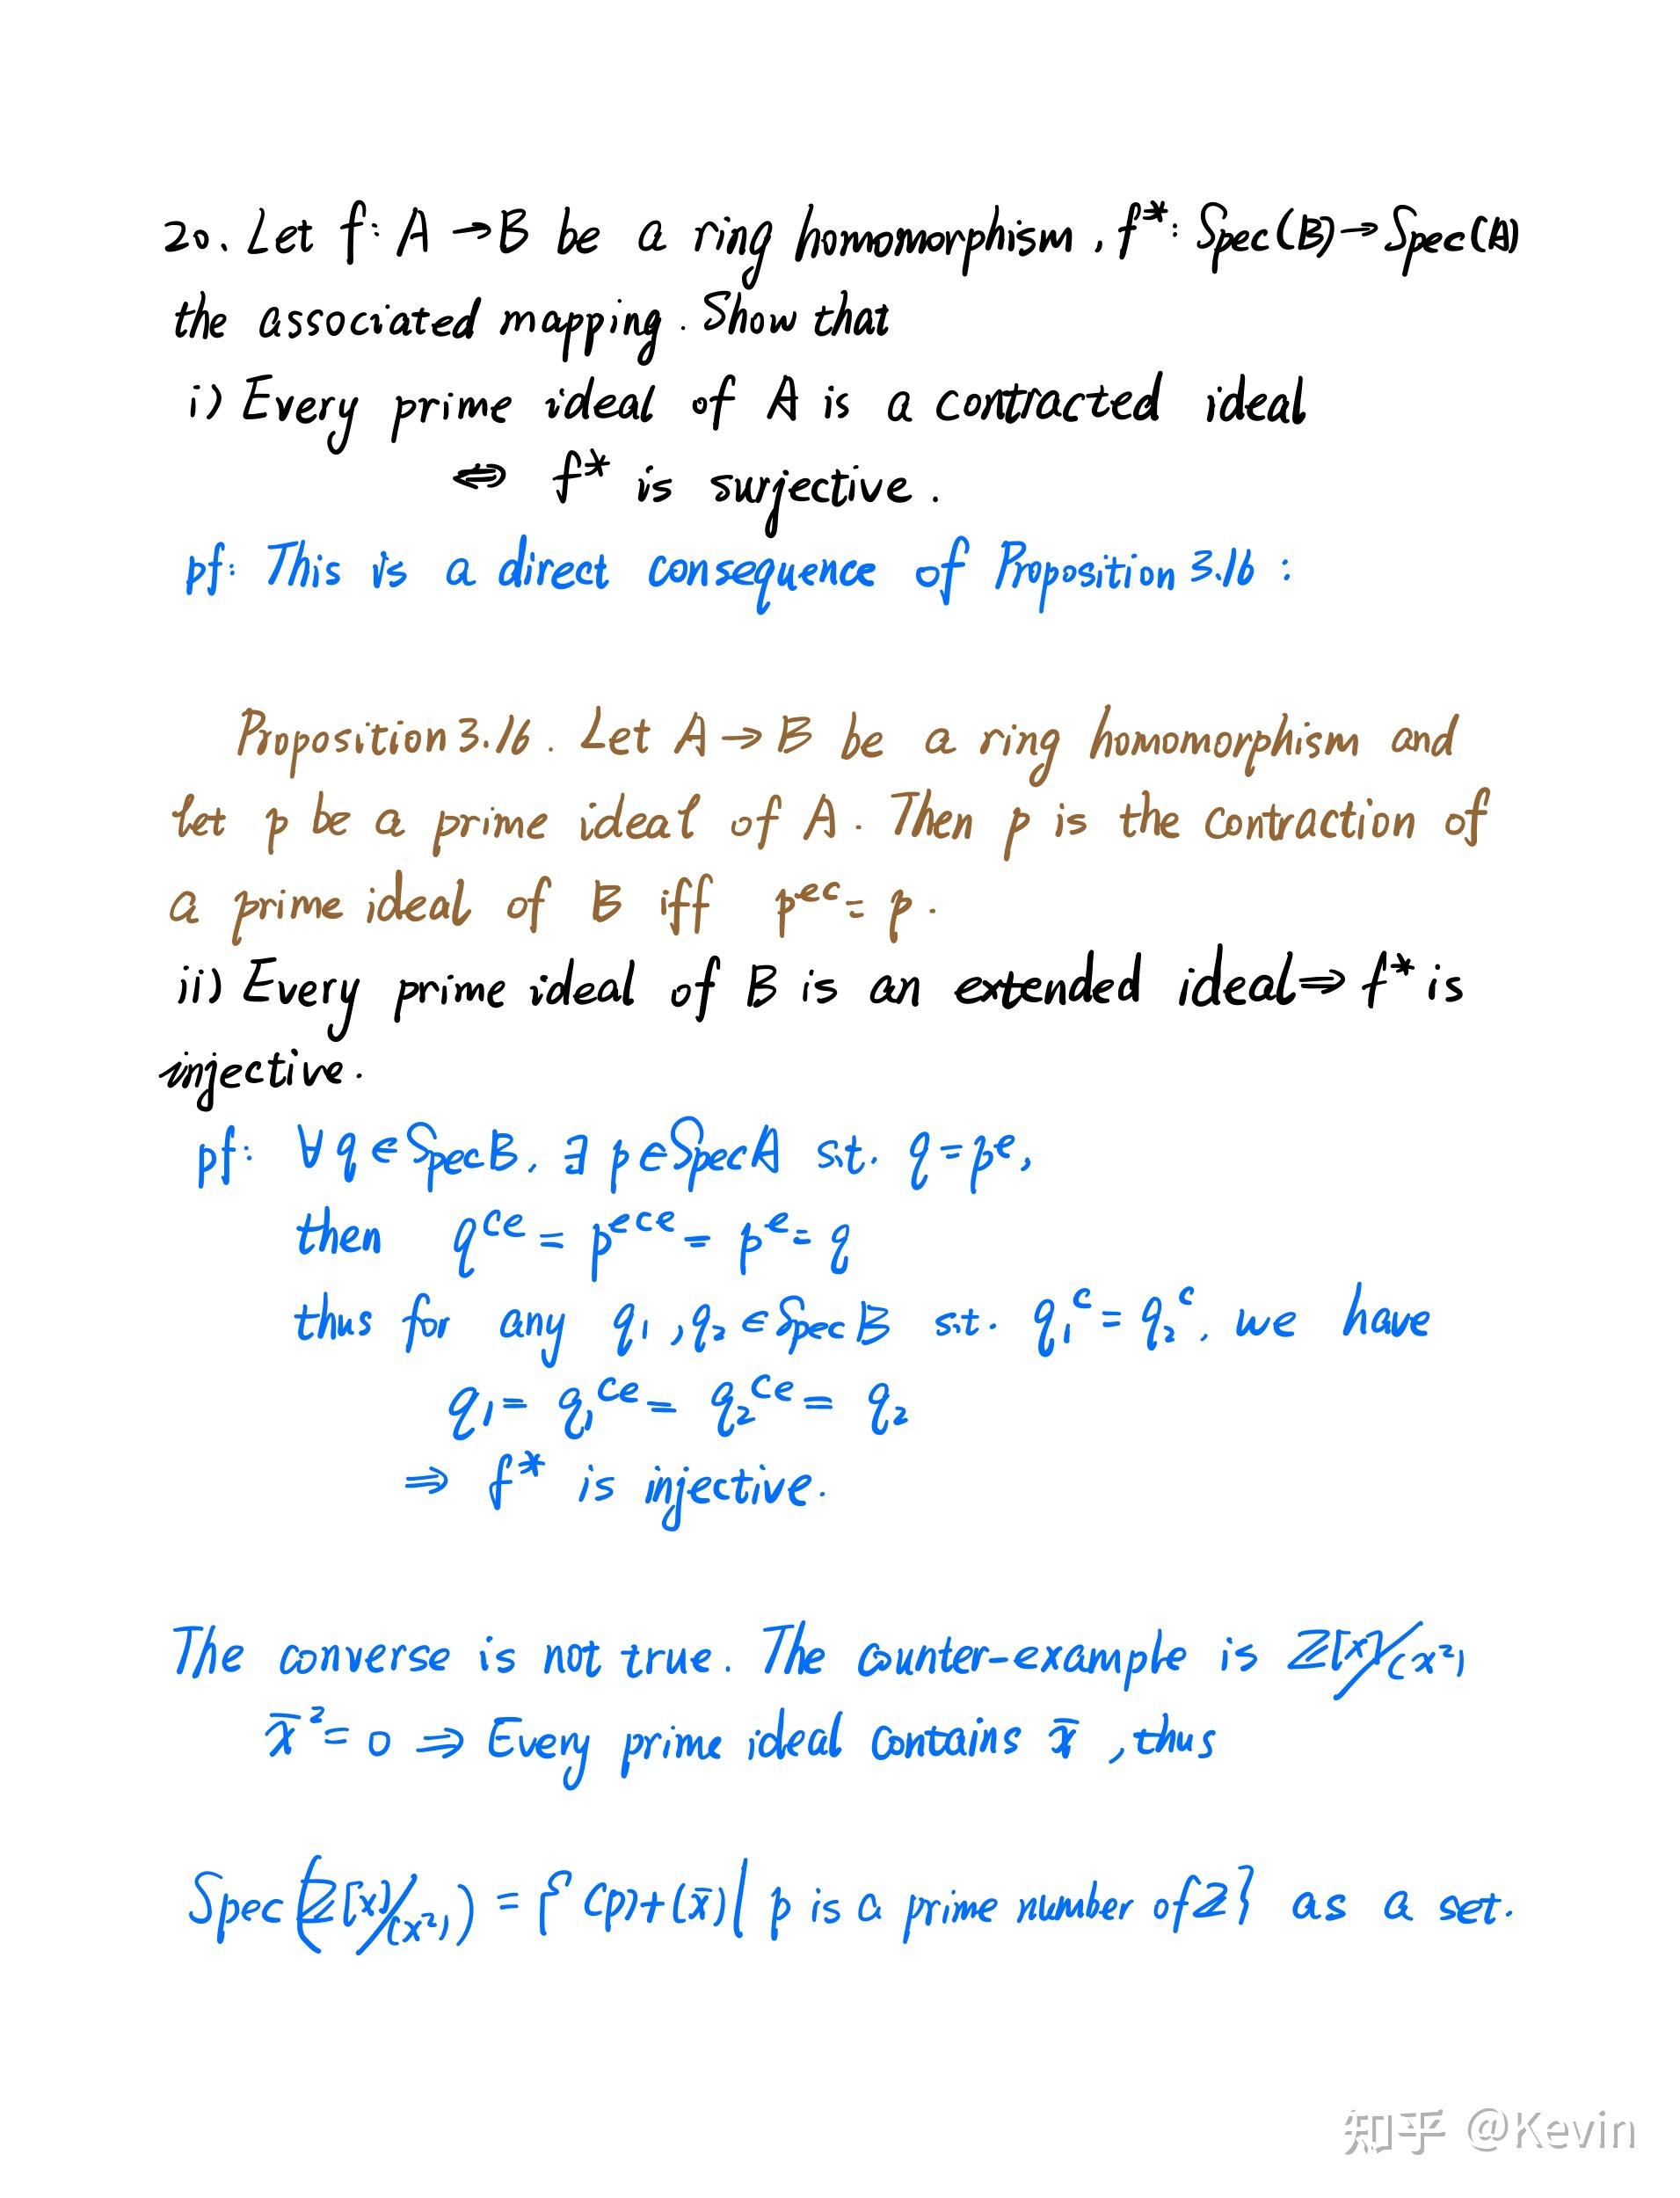 20. Let f: A → B be a ring homomorphism, f*: Spec(B) → Spec(A)
the associated mapping. Show that
i) Every prime ideal of A is a contracted ideal
⇔ f* is surjective.
pf: This is a direct consequence of Proposition 3.16 :
Proposition 3.16. Let A → B be a ring homomorphism and
let p be a prime ideal of A. Then p is the contraction of
a prime ideal of B iff p^{ec} = p.
ii) Every prime ideal of B is an extended ideal ⇒ f* is
injective.
pf: ∀ q ∈ Spec B, ∃ p ∈ Spec A s.t. q = p^e,
then q^{ce} = p^{ece} = p^e = q
thus for any q₁, q₂ ∈ Spec B s.t. q₁^c = q₂^c, we have
q₁ = q₁^{ce} = q₂^{ce} = q₂
⇒ f* is injective.
The converse is not true. The counter-example is ℤ[x]/(x²)
x̄² = 0 ⇒ Every prime ideal contains x̄, thus
Spec(ℤ[x]/(x²)) = {(p)+(x̄) | p is a prime number of ℤ} as a set.
知乎 @Kevin